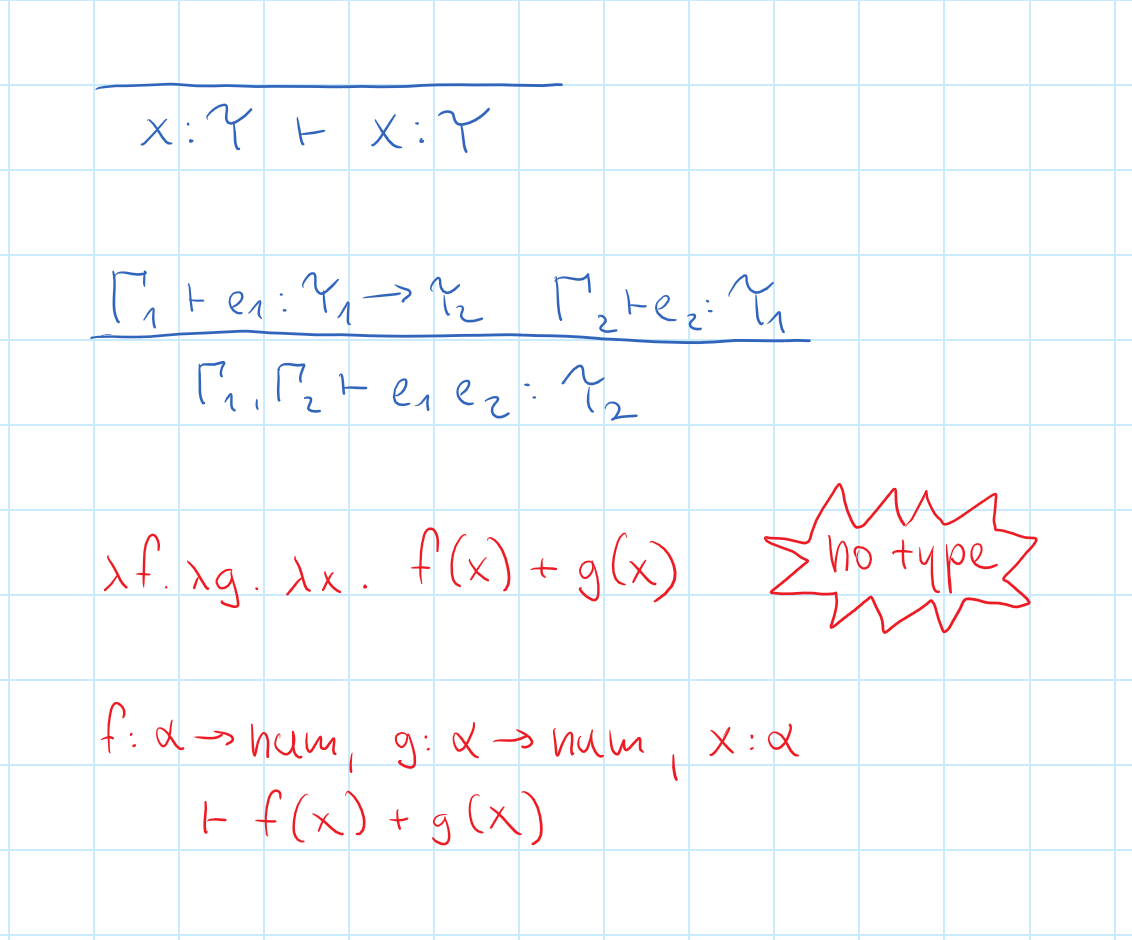 x : τ ⊢ x : τ
Γ₁ ⊢ e₁ : τ₁ → τ₂ Γ₂ ⊢ e₂ : τ₁
Γ₁, Γ₂ ⊢ e₁ e₂ : τ₂
λf. λg. λx. f(x) + g(x) no type
f : α → num, g : α → num, x : α
⊢ f(x) + g(x)